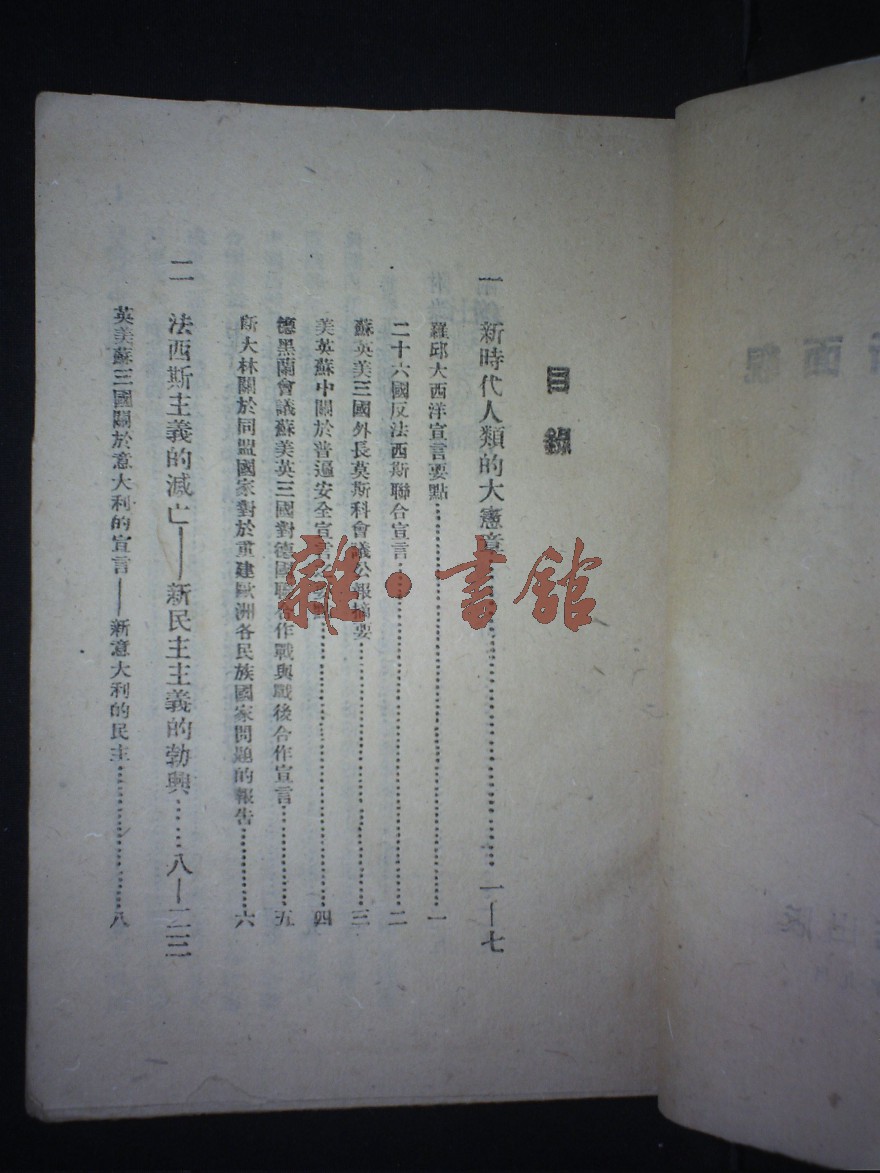 目錄
一 新時代人類的大憲章……一—七
羅邱大西洋宣言要點……一
二十六國反法西斯聯合宣言……二
蘇英美三國外長莫斯科會議公報摘要……三
美英蘇中關於普遍安全宣言……四
德黑蘭會議蘇美英三國對德國聯合作戰與戰後合作宣言……五
斯大林關於同盟國家對於重建歐洲各民族國家問題的報告……六
二 法西斯主義的滅亡——新民主主義的勃興……八—二三
英美蘇三國關於意大利的宣言——新意大利的民主……八
雜·書館
面貌